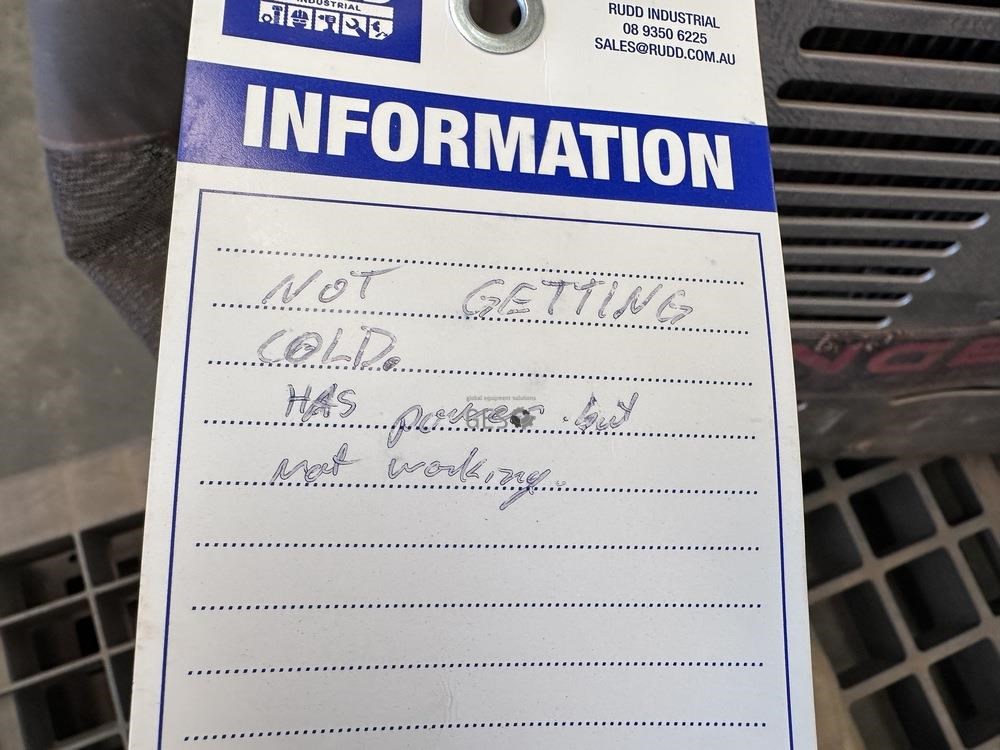 INDUSTRIAL
RUDD INDUSTRIAL
08 9350 6225
SALES@RUDD.COM.AU
INFORMATION
NOT GETTING
COLD.
HAS power but
not working.
global equipment solutions
GES